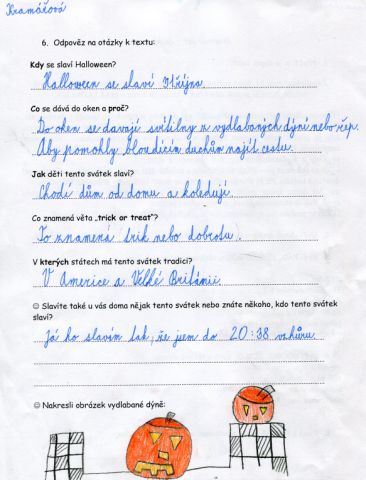 Kramářová
6. Odpověz na otázky k textu:
Kdy se slaví Halloween?
Halloween se slaví 31 října
Co se dává do oken a proč?
Do oken se davají svítilny z vydlabaných dýní nebo řep.
Aby pomohly bloudícím duchům najít cestu.
Jak děti tento svátek slaví?
Chodí dům od domu a koledují.
Co znamená věta „trick or treat"?
To znamená trik nebo dobrotu.
V kterých státech má tento svátek tradici?
V Americe a Velké Británii.
☺ Slavíte také u vás doma nějak tento svátek nebo znáte někoho, kdo tento svátek
slaví?
Já ho slavím tak, že jsem do 20:38 vzhůru.
☺ Nakresli obrázek vydlabané dýně: